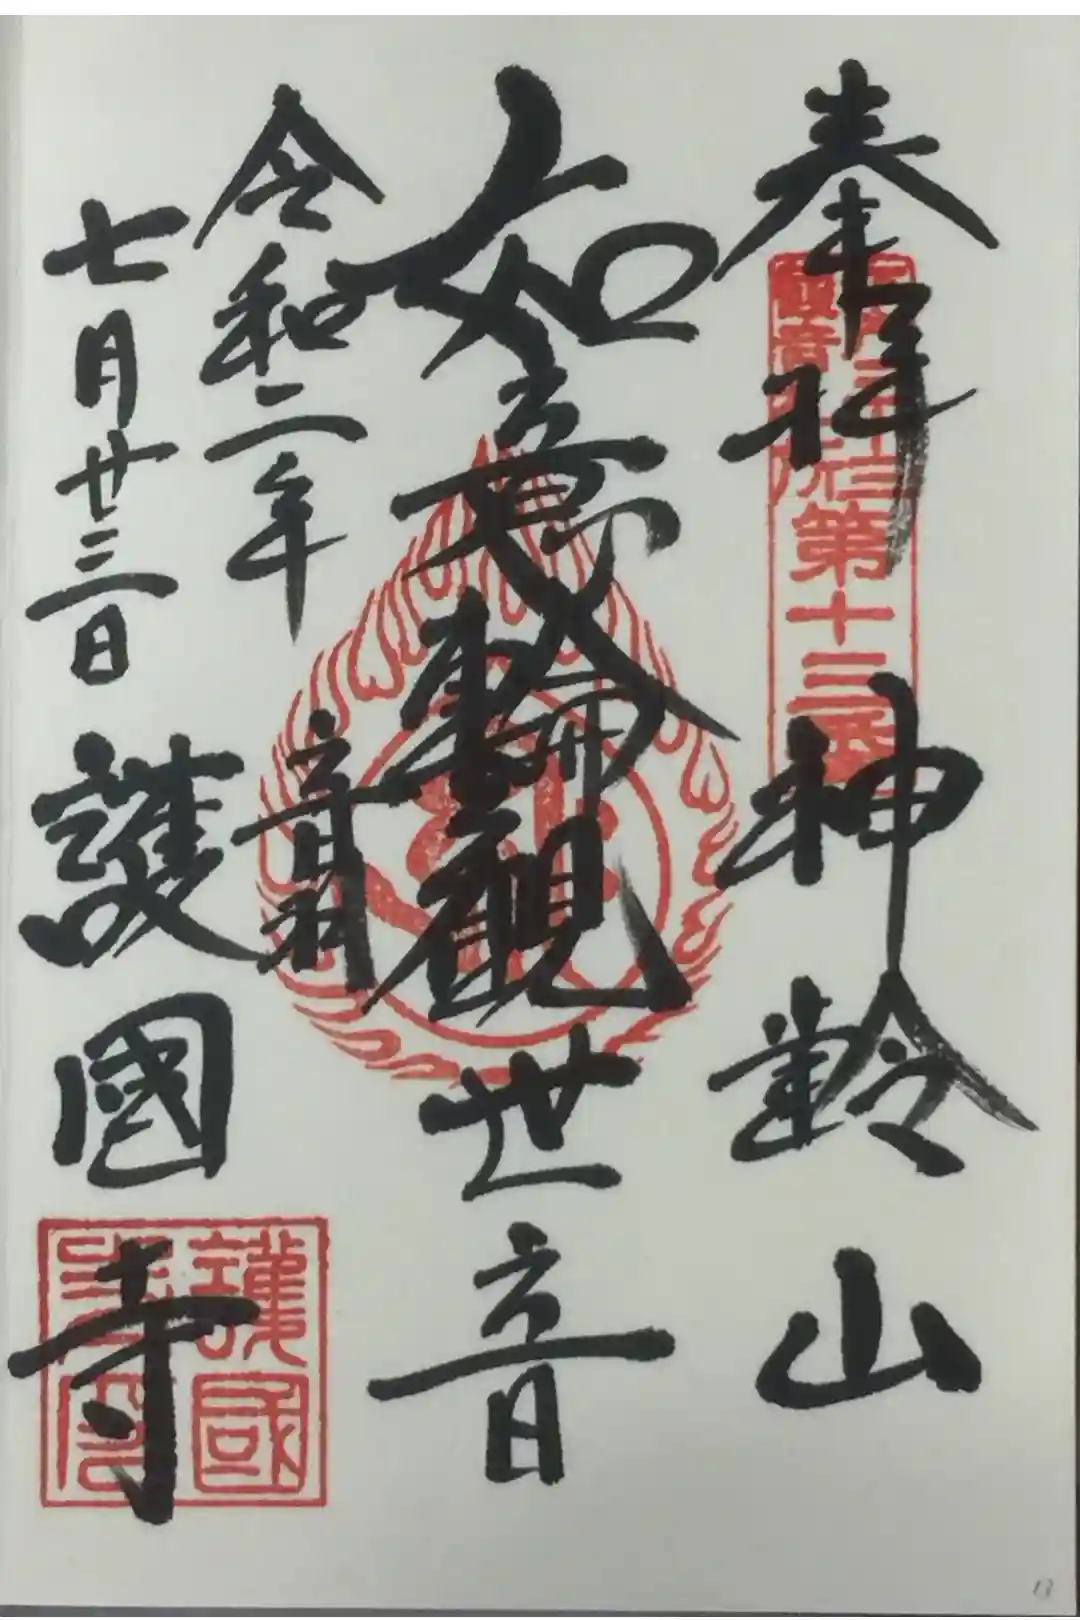 奉拝
神齢山
如意輪観世音
令和二年
七月廿三日
音羽
護國寺
第十三番
護國